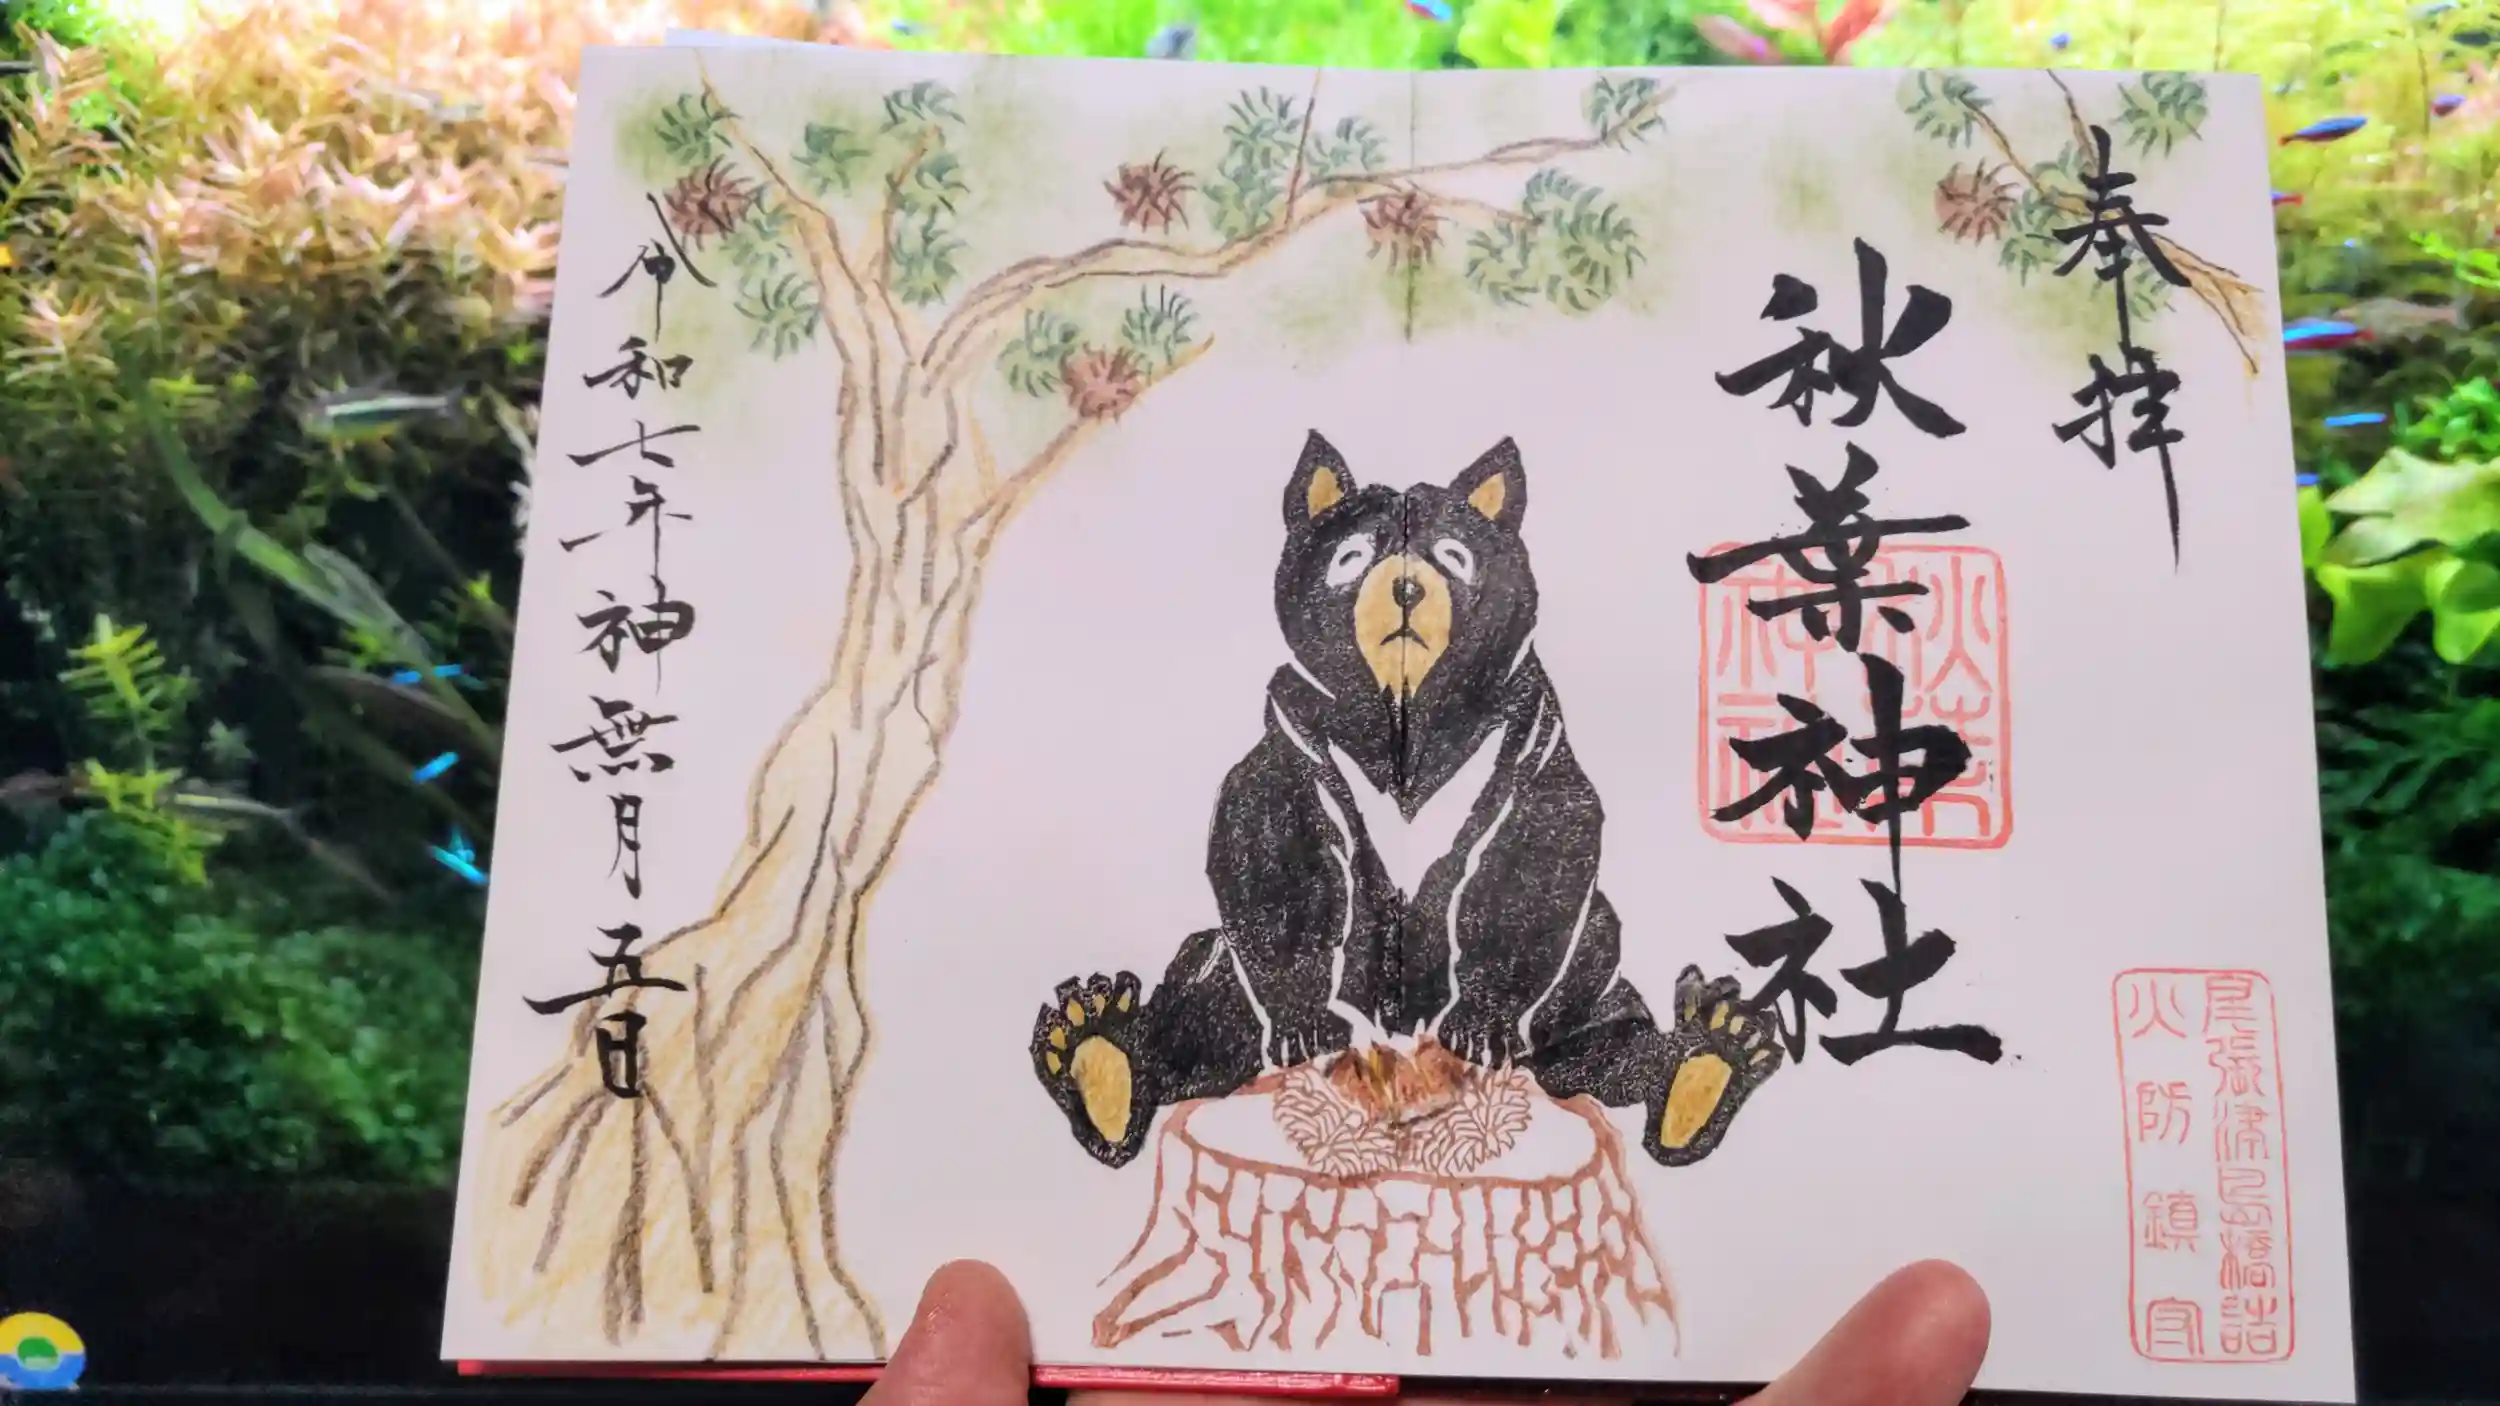 奉拝
秋葉神社
秋葉
神社
尾張津島橋詰
火防鎮守
令和七年神無月五日